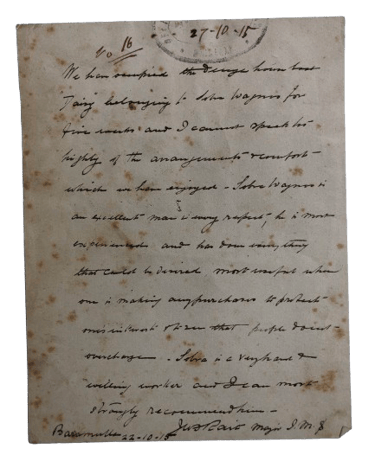 27-10-15
No 16
We have occupied the Dunga house boat
Fairy belonging to Sobra Wagnoo for
five weeks and I cannot speak too
highly of the arrangements & comfort
which we have enjoyed. Sobra Wagnoo is
an excellent man in every respect, he is most
experienced and has done everything
that could be desired, most useful when
one is making any purchases to protect
ones interest & to see that people do not
overcharge. Sobra is a very hard &
willing worker and I can most
strongly recommend him -
Baramulla 22-10-15 Major I.M.S